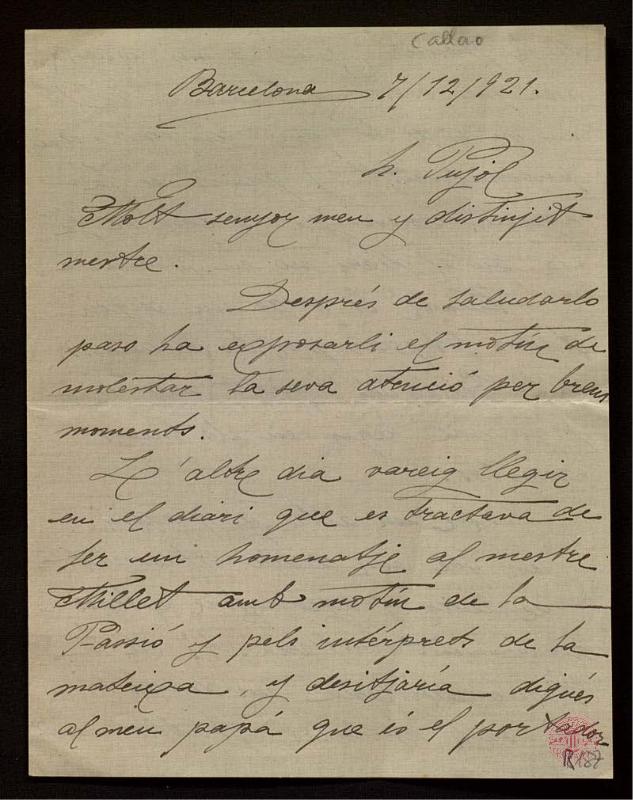 Callao
Barcelona 7/12/921.
h. Pujol
Molt senyor meu y distinjit
mestre.
Després de saludarlo
paso ha exposarli el motiu de
molestar la seva atenció per breus
moments.
L'altre dia vareig llegir
en el diari que es tractava de
fer un homenatje al mestre
Millet amb motiu de la
Passió y pels intérprets de la
mateixa, y desitjaría digués
al meu papá que és el portador
R 187